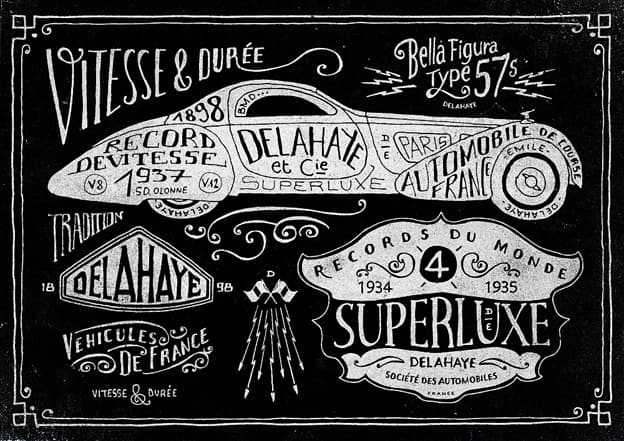 VITESSE & DURÉE
Bella Figura
Type 57s
DELAHAYE
1898
BMD...
RECORD
DE VITESSE
1937
V8
S.D. OLONNE
V12
DELAHAYE
DELAHAYE
et Cie
SUPERLUXE
PARIS
AUTOMOBILE DE COURSE
FRANCE
-EMILE-
DELAHAYE
TRADITION
18 DELAHAYE 98
VÉHICULES
DE FRANCE
VITESSE & DURÉE
D
RECORDS DU MONDE
4
1934 1935
SUPERLUXE
DELAHAYE
SOCIÉTÉ DES AUTOMOBILES
FRANCE